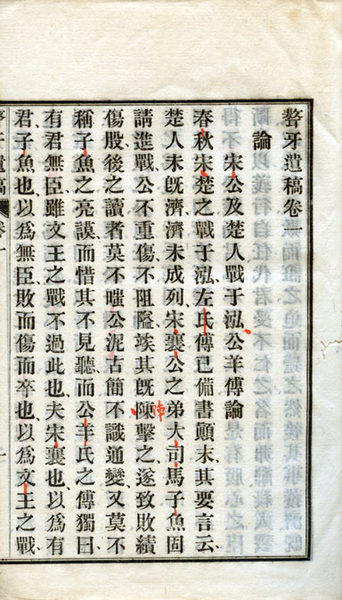 聱牙遺稿卷一
論
宋公及楚人戰于泓公羊傳論
春秋宋楚之戰于泓左氏傳已備書顛末其要言云
楚人未旣濟濟未成列宋襄公之弟大司馬子魚固
請進戰公不重傷不阻隘竢其旣陳擊之遂致敗績
傷股後之讀者莫不嗤公泥古簡不識通變又莫不
稱子魚之亮謨而惜其不見聽而公羊氏之傳獨曰
有君無臣雖文王之戰不過此也夫宋襄也以爲有
君子魚也以爲無臣敗而傷而卒也以爲文王之戰
聱牙遺稿
卷一
一